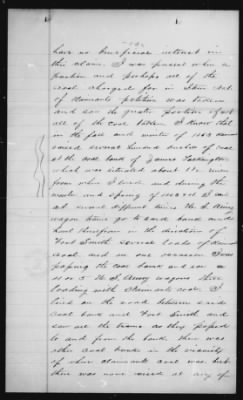 have no beneficial interest in
this claim. I was present when a
portion and perhaps all of the
coal charged for in Item No 1.
of claimants petition was taken
and saw the greater portion if not
all of the coal taken. I know that
in the fall and winter of 1863
raised several hundred bushels of coal
at the coal bank of James
which was situated about 1½ miles
from where I lived and during the
winter and spring of 1863 & 4 I saw
at several different times the U.S. Army
wagon trains go to said bank and
haul therefrom in the direction of
Fort Smith several loads of
coal, and on one occasion I was
passing the coal bank and saw
4 or 5 U.S. Army wagons there
loading with claimants coal. I
lived on the road between said
coal bank and Fort Smith and
saw all the teams as they passed
to and from the bank. There was
other coal banks in the vicinity
of where claimants coal was, but
there was none raised at any of